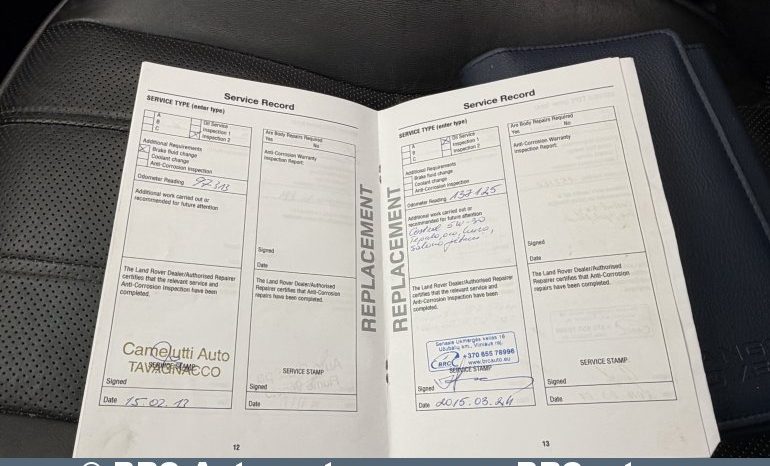 Service Record
SERVICE TYPE (enter type)
A
B
C
Oil Service
Inspection 1
Inspection 2
Additional Requirements
Brake fluid change
Coolant change
Anti-Corrosion Inspection
Odometer Reading
Additional work carried out or
recommended for future attention
The Land Rover Dealer/Authorised Repairer
certifies that the relevant service and
Anti-Corrosion inspection have been
completed.
Camelutti Auto
TAVAGNACCO
SERVICE STAMP
Signed
Date 15.02.13
Are Body Repairs Required
Yes No
Anti-Corrosion Warranty
Inspection Report:
Signed
Date
The Land Rover Dealer/Authorised
Repairer certifies that Anti-Corrosion
repairs have been completed.
SERVICE STAMP
Signed
Date
12
REPLACEMENT
REPLACEMENT
Service Record
SERVICE TYPE (enter type)
A
B
C
Oil Service
Inspection 1
Inspection 2
Additional Requirements
Brake fluid change
Coolant change
Anti-Corrosion Inspection
Odometer Reading 137125
Additional work carried out or
recommended for future attention
Castrol 5W-30
The Land Rover Dealer/Authorised Repairer
certifies that the relevant service and
Anti-Corrosion inspection have been
completed.
Senasis Ukmergės kelias 16
Užubalių km., Vilniaus raj.
BRC +370 655 78996
www.brcauto.eu
SERVICE STAMP
Signed
Date 2015.03.24
Are Body Repairs Required
Yes No
Anti-Corrosion Warranty
Inspection Report:
Signed
Date
The Land Rover Dealer/Authorised
Repairer certifies that Anti-Corrosion
repairs have been completed.
SERVICE STAMP
Signed
Date
13